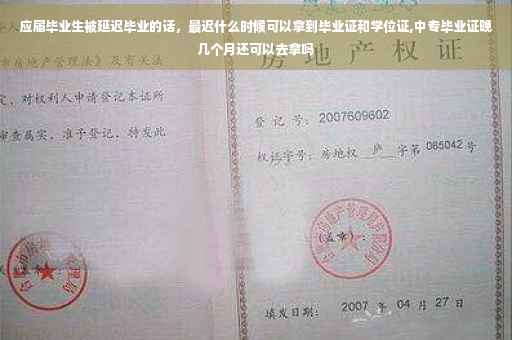 应届毕业生被延迟毕业的话，最迟什么时候可以拿到毕业证和学位证,中专毕业证晚
几个月还可以去拿吗
房地产管理法》及有关法
定，对权利人申请登记本证所
审查属实，准予登记，特发此
房 地 产 权 证
登 记 号：2007609602
权证字号：房地权 庐 字第 085042 号
(盖章)：
填发日期： 2007 年 04 月 27 日